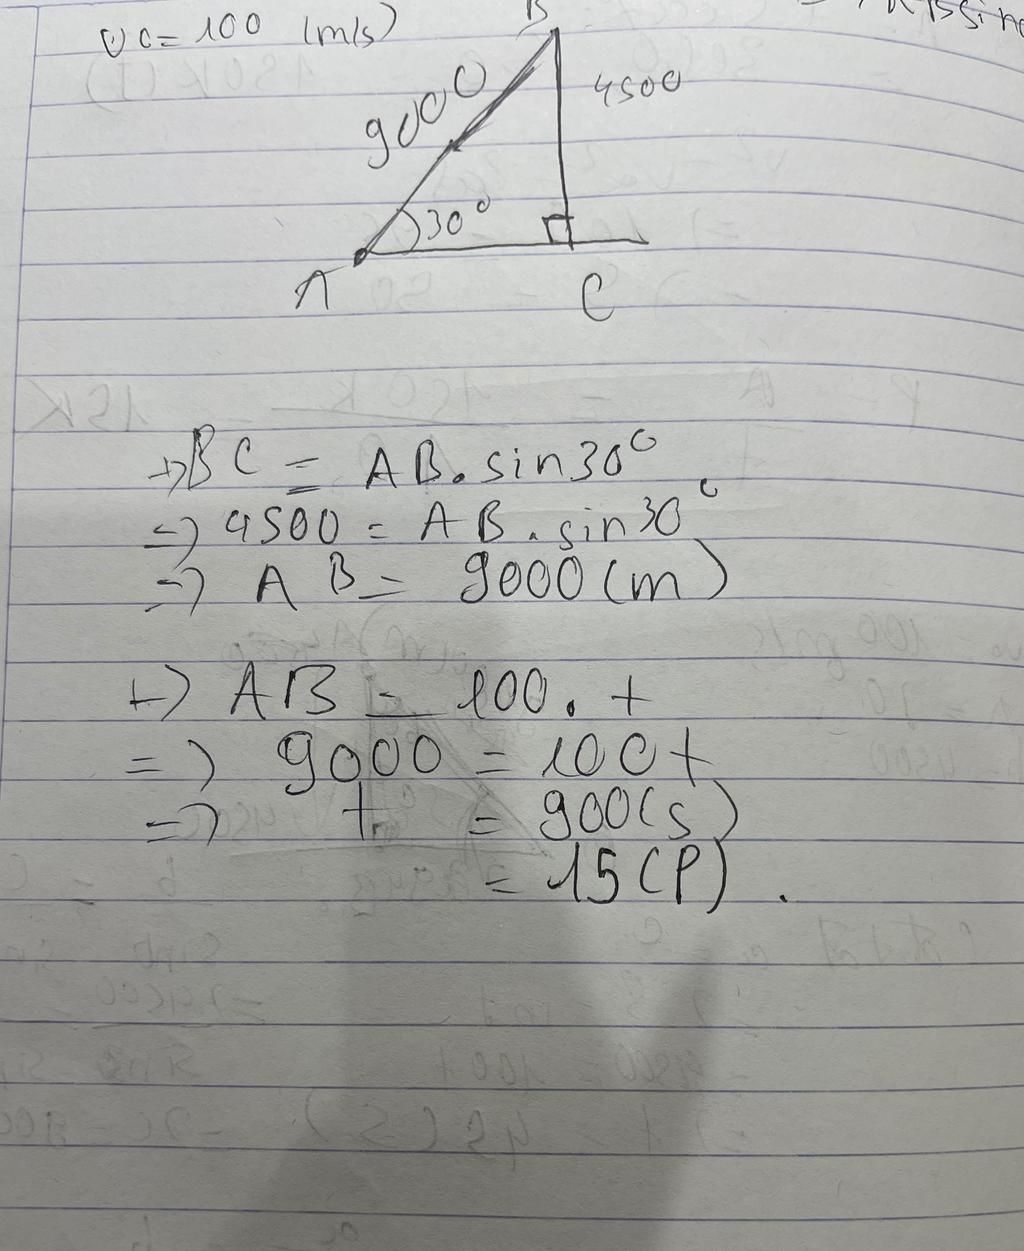 v0 = 100 (m/s)
B
9000
4500
30°
A
C
+) BC = AB . sin30°
=> 4500 = AB . sin30°
=> AB = 9000 (m)
+) AB = 100 . t
=> 9000 = 100t
=> t = 900(s)
= 15 (P) .